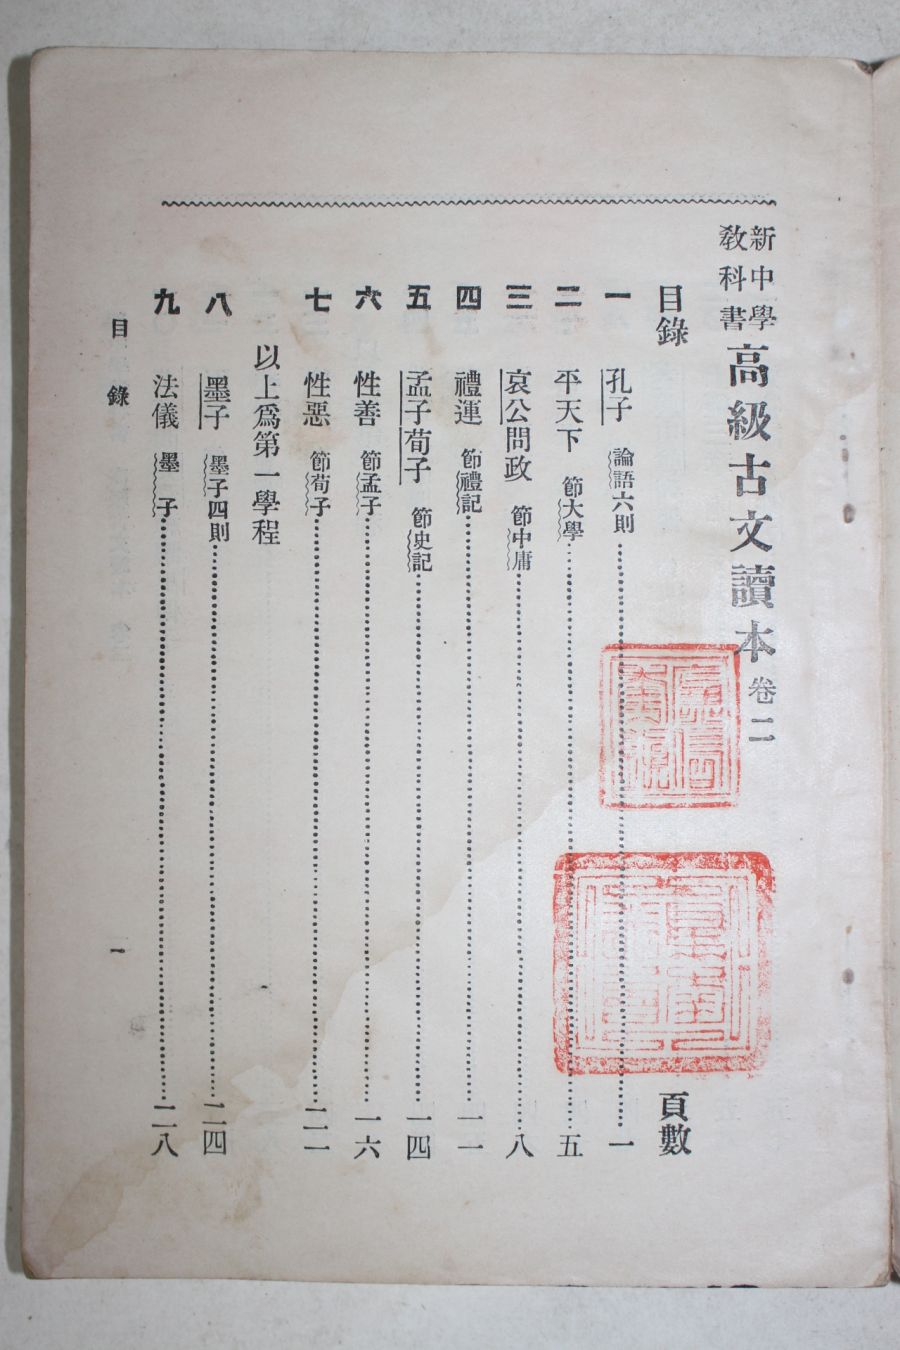 新中學教科書高級古文讀本卷二
目錄 頁數
一 孔子 論語六則 一
二 平天下 節大學 五
三 哀公問政 節中庸 八
四 禮運 節禮記 一一
五 孟子荀子 節史記 一四
六 性善 節孟子 一六
七 性惡 節荀子 二一
以上爲第一學程
八 墨子 墨子四則 二四
九 法儀 墨子 二八
目錄 一